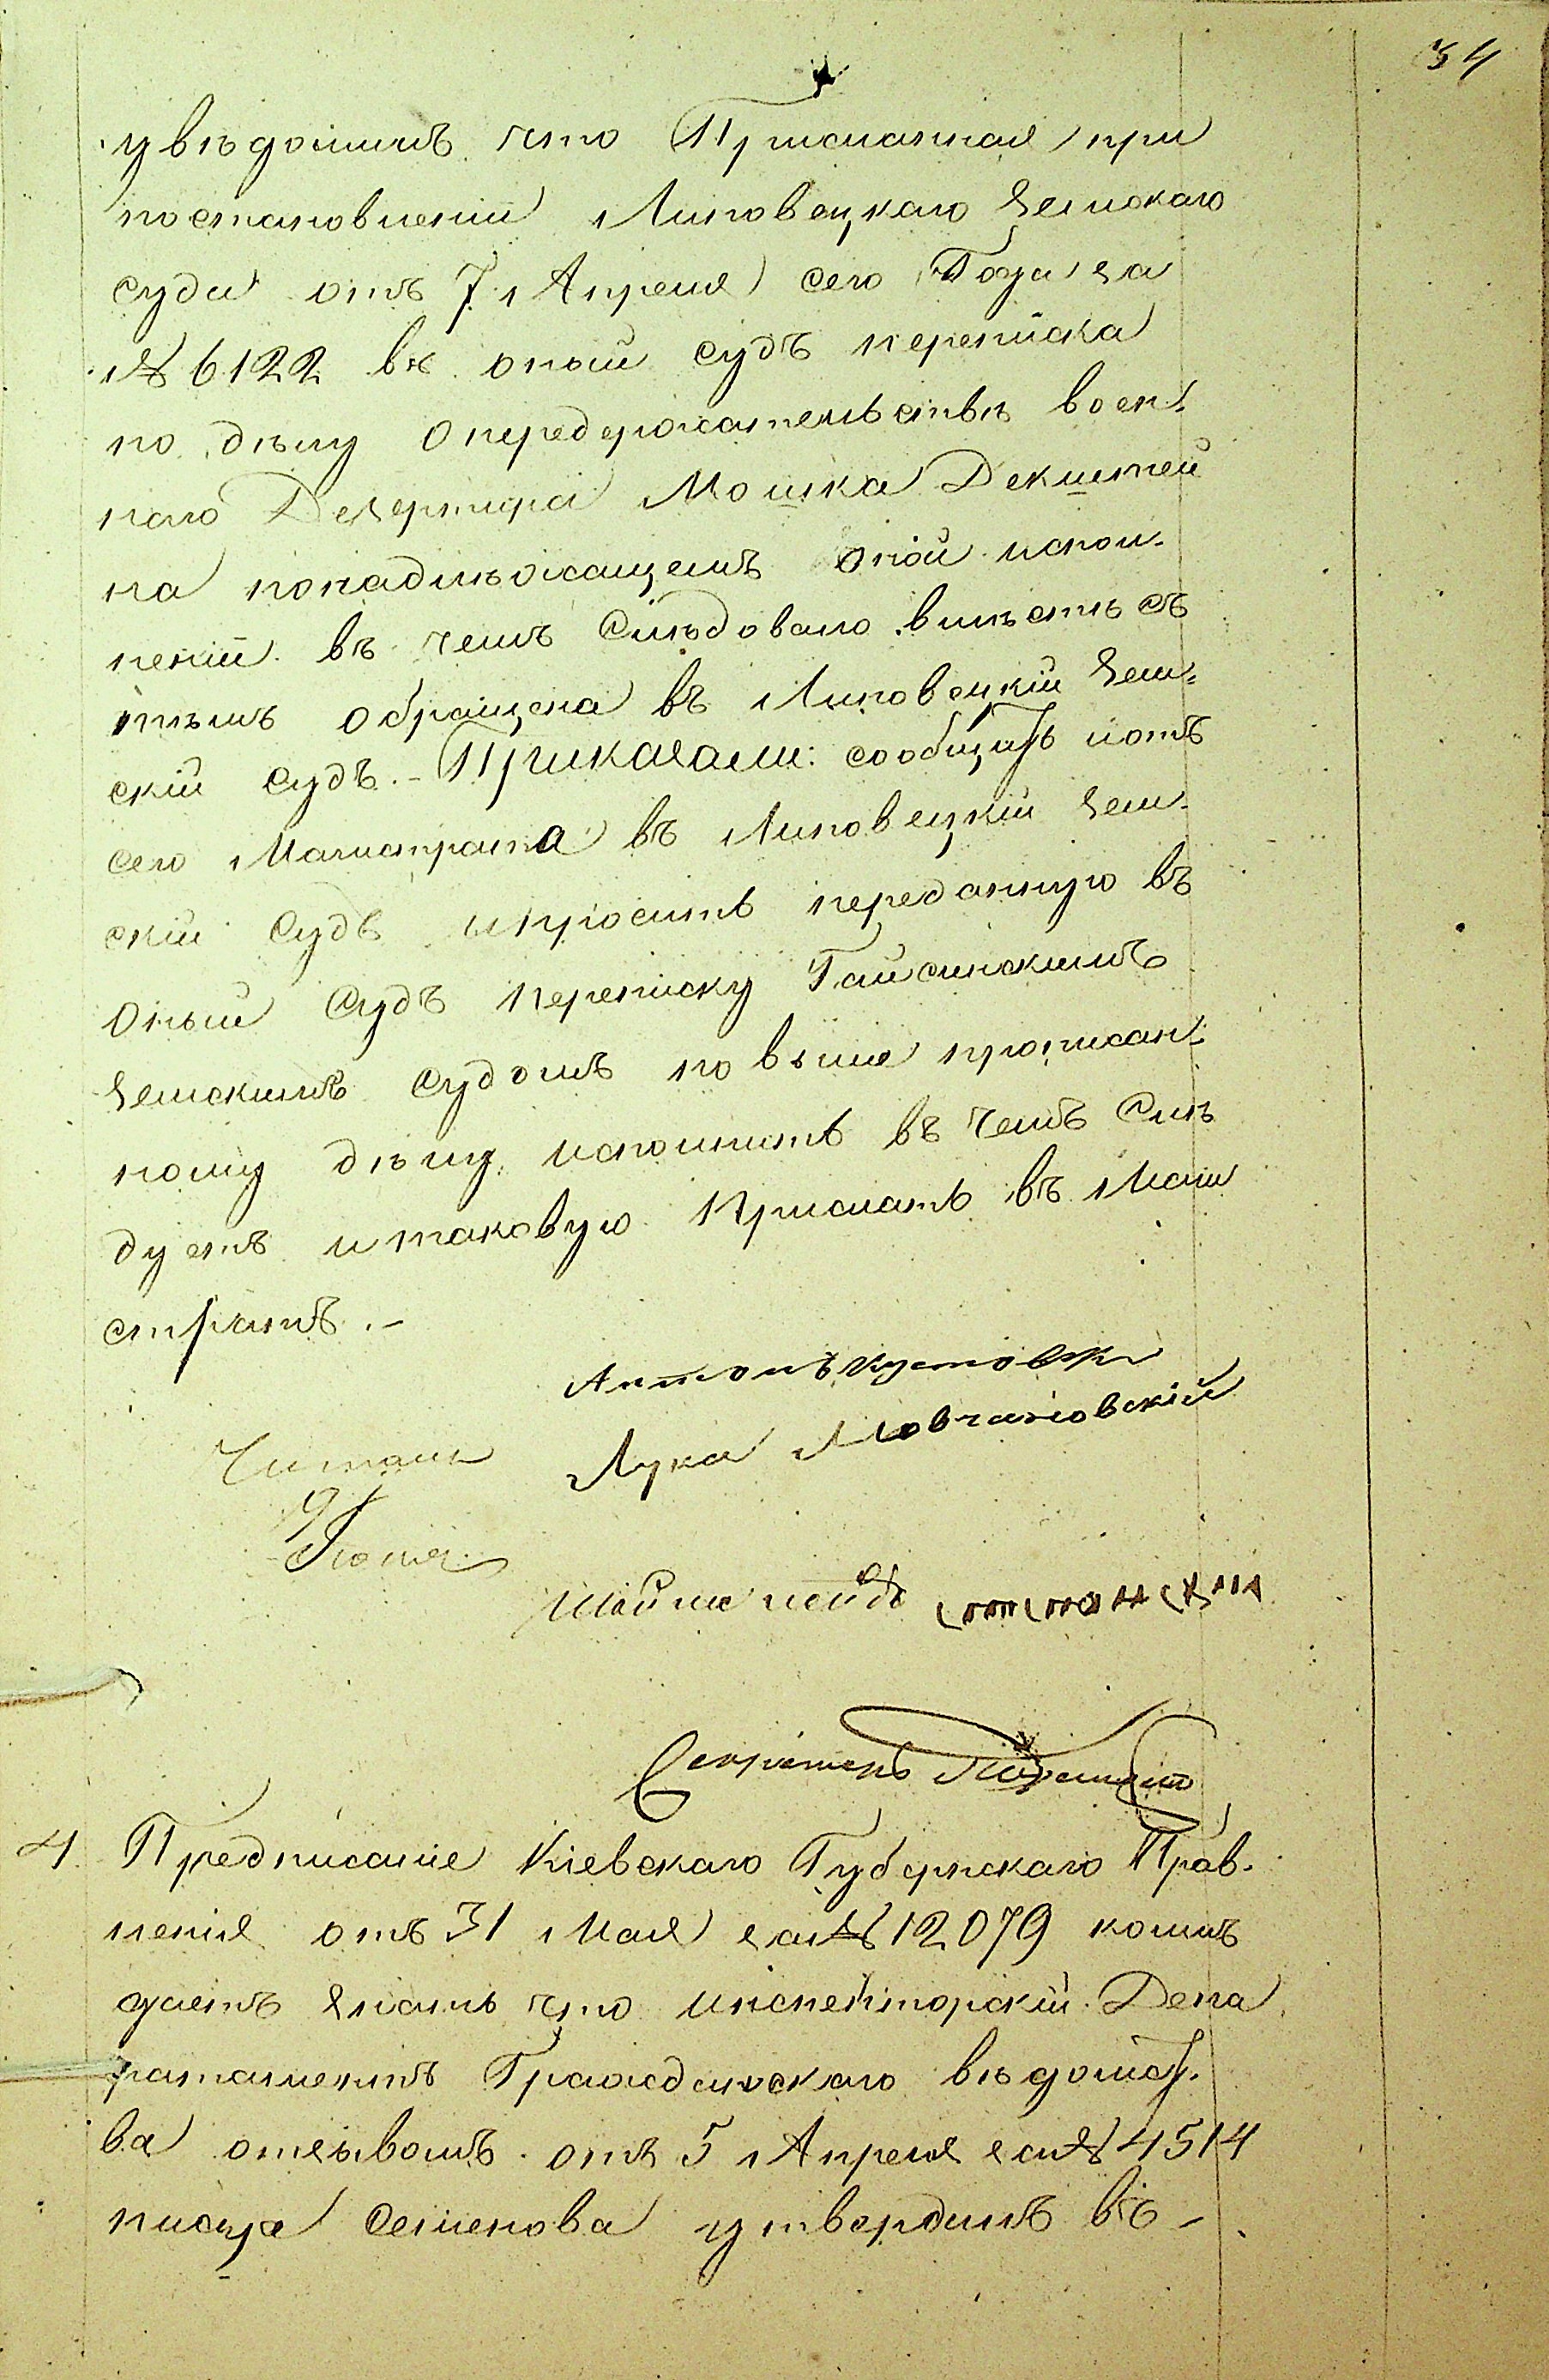 34
увѣдомилъ что Присланная при
постановленіи Липовецкаго Земскаго
суда отъ 7 Апреля сего Года за
№ 6122 въ оный судъ переписка
по дѣлу опередержательствѣ воен-
наго Дезертира Мошка Декшteй
на понадлѣжащемъ оной испол-
неніи въ чемъ Слѣдовало вмѣстѣ съ
тѣмъ обращена въ Липовецкій Зем-
скій судъ. – Приказали: сообщить изъ
сего Магистрата въ Липовецкій Зем-
скій Судъ ипросить переданную въ
Оный Судъ переписку Гайсинскимъ
Земскимъ судомъ по выше прописан-
ному дѣлу исполнить въ чемъ Слѣ
дуетъ итаковую Прислать въ Маги
стратъ. –
Антонъ
Лука Мовчановскій
Читалъ
19 Іюня
Секретарь
4. Предписаніе Кіевскаго Губернскаго Прав-
ленія отъ 31 Мая за № 12079 коимъ
даетъ знать что инспекторскій Депа
ртаментъ Гражданскаго вѣдомст-
ва отзывомъ отъ 5 Апреля за № 4514
писца Семенова утвердилъ въ –